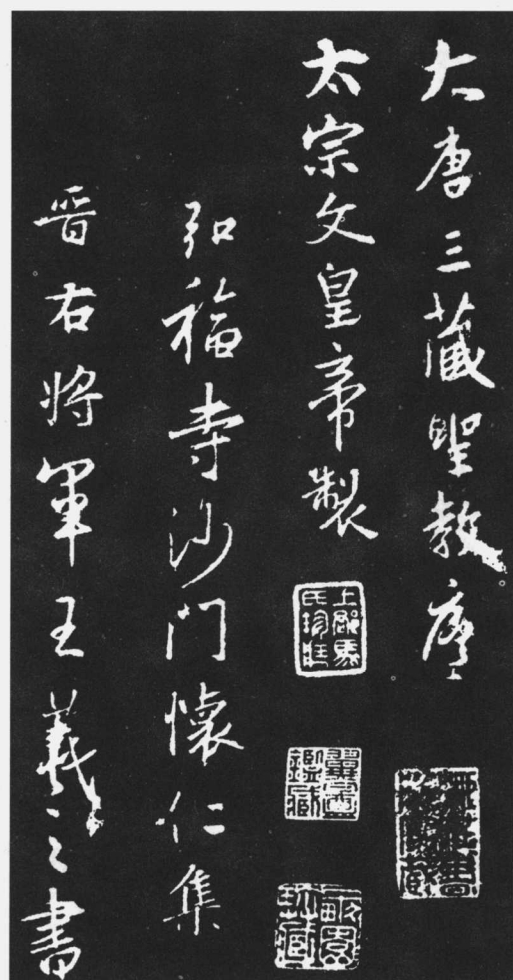 大唐三藏聖教序
太宗文皇帝製
弘福寺沙門懷仁集
晋右將軍王羲之書